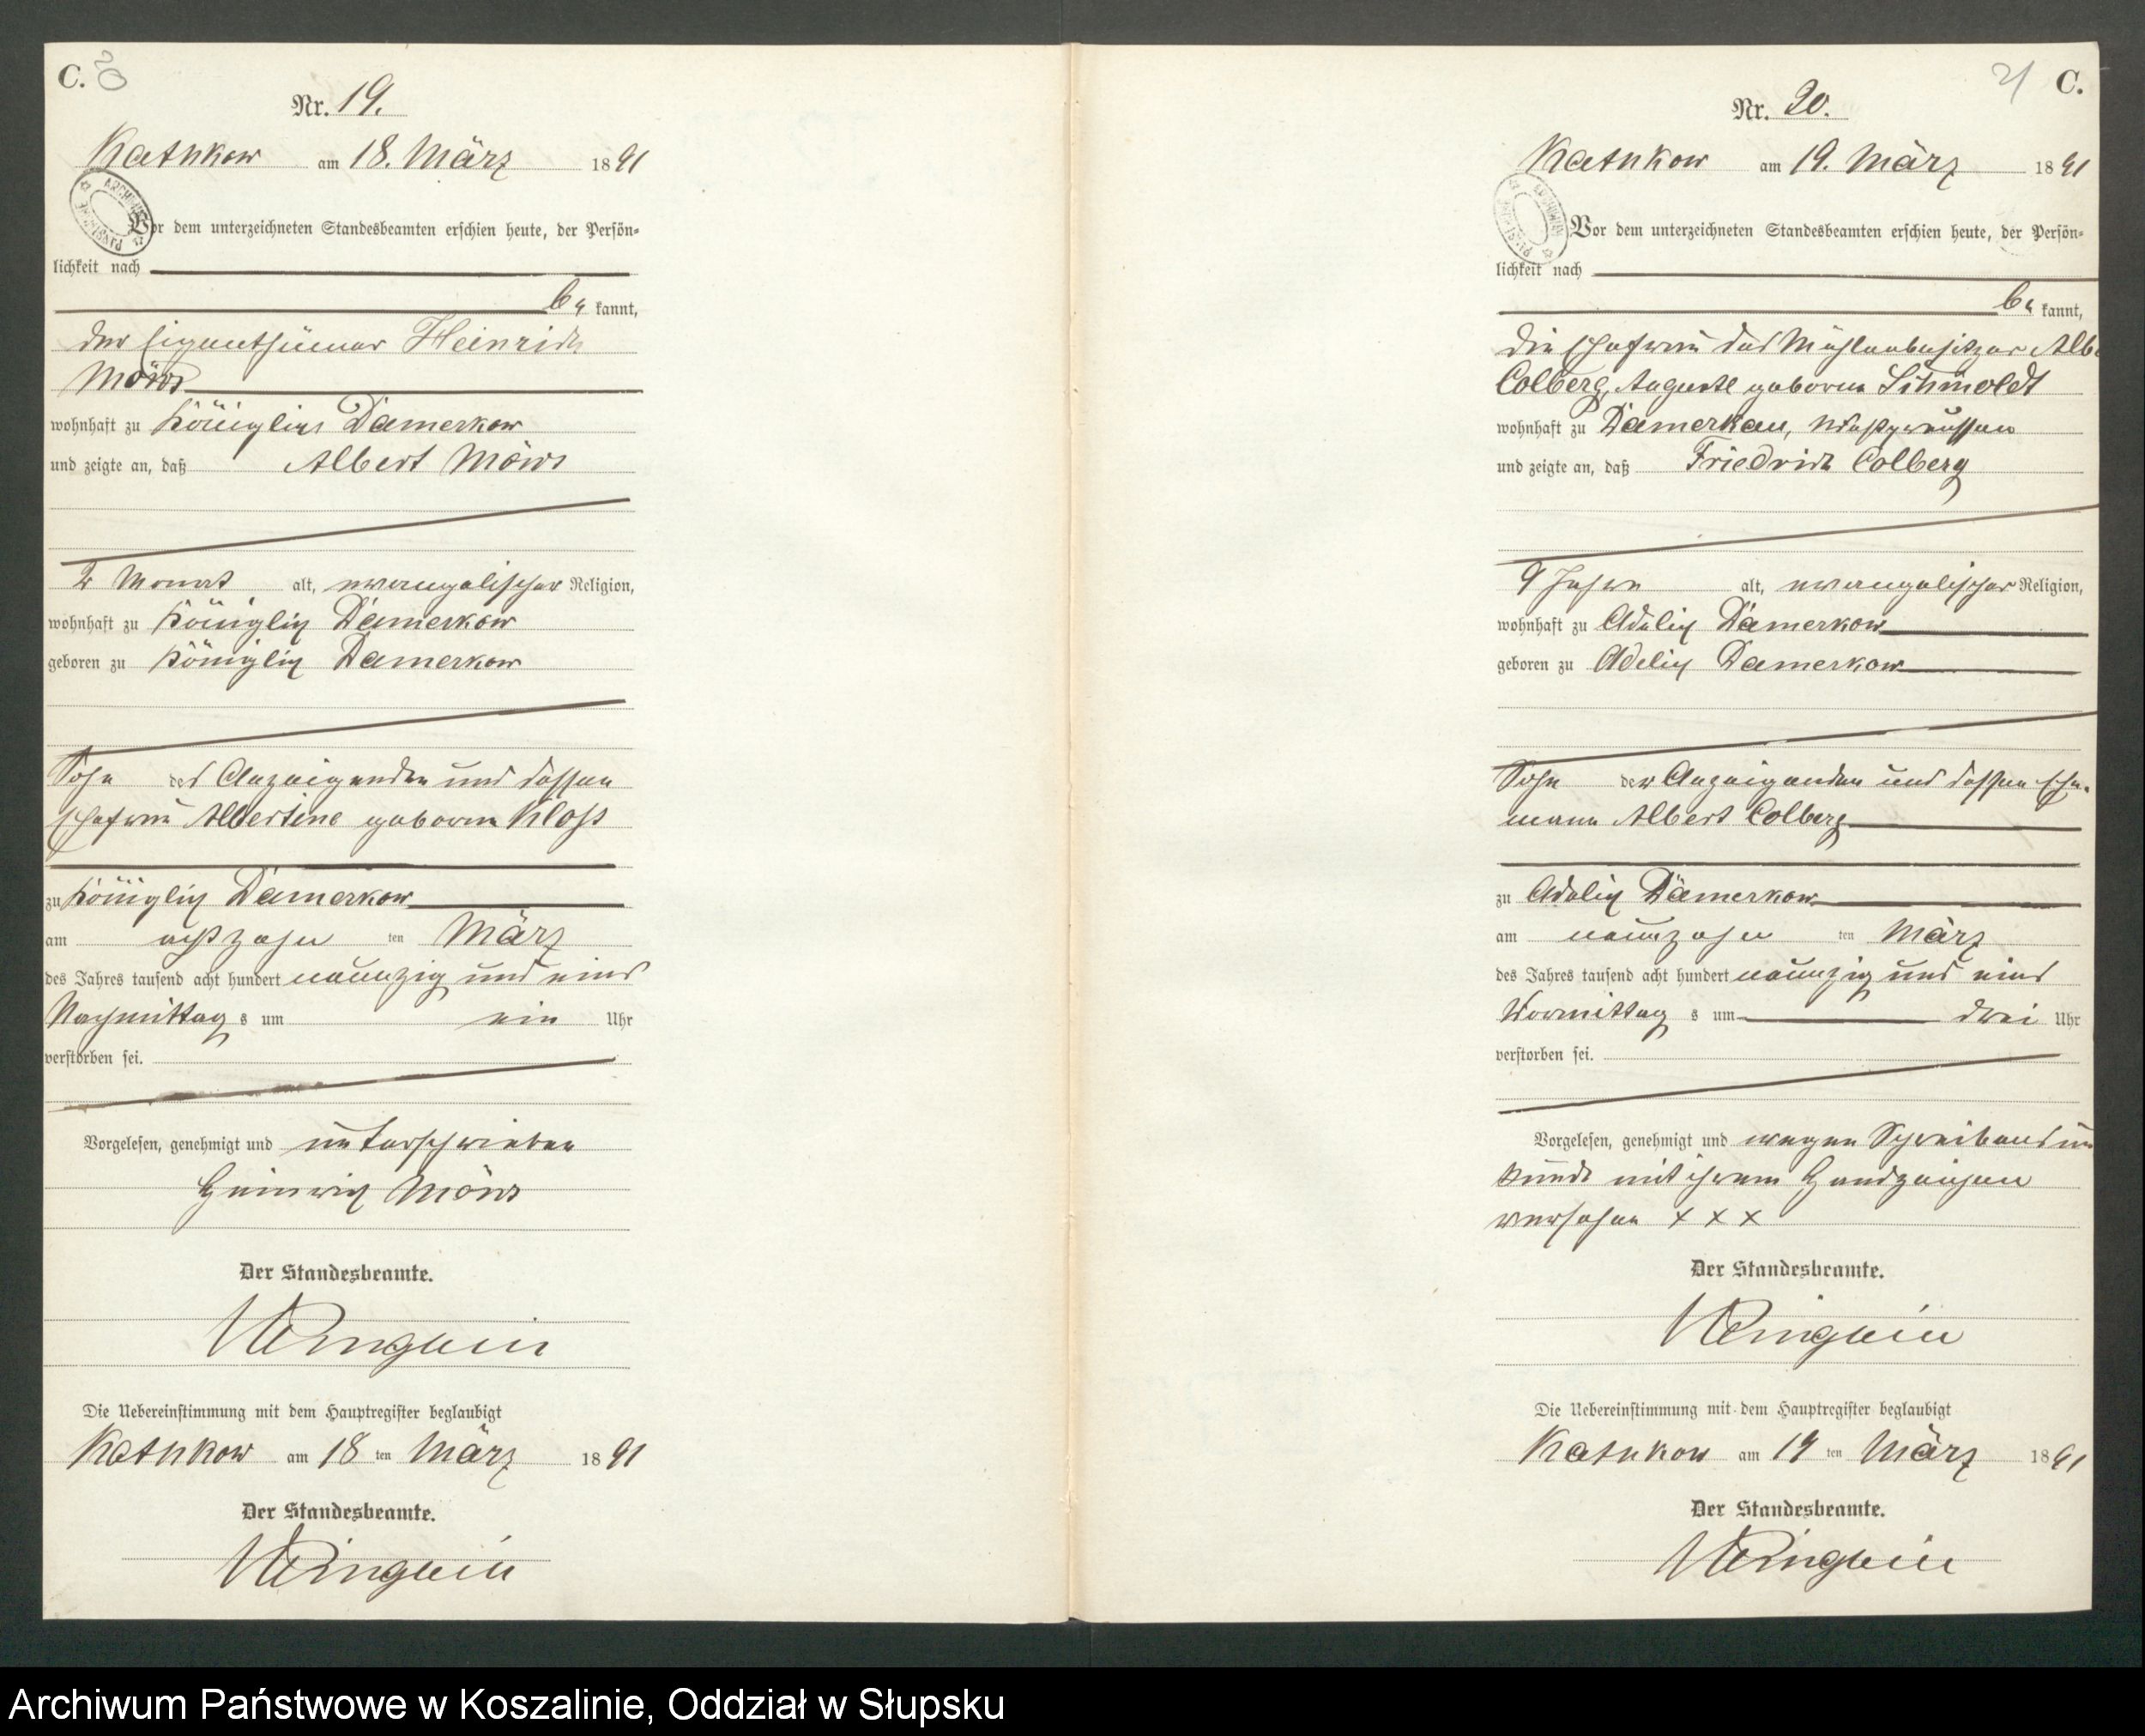 C. 20
Nr. 19.
Kathkow am 18. März 1891
Vor dem unterzeichneten Standesbeamten erschien heute, der Persön-
lichkeit nach
be kannt,
der Eigenthümer Heinrich
Möws
wohnhaft zu Königlich Damerkow
und zeigte an, daß Albert Möws
2 Monat alt, evangelischer Religion,
wohnhaft zu Königlich Damerkow
geboren zu Königlich Damerkow
Sohn des Anzeigenden und dessen
Ehefrau Albertine geborne Kloß
zu Königlich Damerkow
am achtzehn ten März
des Jahres tausend acht hundert neunzig und eins
Nachmittag s um ein Uhr
verstorben sei.
Vorgelesen, genehmigt und unterschrieben
Heinrich Möws
Der Standesbeamte.
Die Uebereinstimmung mit dem Hauptregister beglaubigt
Kathkow am 18 ten März 1891
Der Standesbeamte.
21 C.
Nr. 20.
Kathkow am 19. März 1891
Vor dem unterzeichneten Standesbeamten erschien heute, der Persön-
lichkeit nach
be kannt,
die Ehefrau des Mühlenbesitzer Albe
Colberg, Auguste geborne Schmoldt
wohnhaft zu Damerkau, Westpreussen
und zeigte an, daß Friedrich Colberg
9 Jahre alt, evangelischer Religion,
wohnhaft zu Adelig Damerkow
geboren zu Adelig Damerkow
Sohn der Anzeigenden und dessen Ehe-
mann Albert Colberg
zu Adelig Damerkow
am neunzehn ten März
des Jahres tausend acht hundert neunzig und eins
Vormittag s um drei Uhr
verstorben sei.
Vorgelesen, genehmigt und wegen Schreibensun
kunde mit ihrem Handzeichen
versehen x x x
Der Standesbeamte.
Die Uebereinstimmung mit dem Hauptregister beglaubigt
Kathkow am 19 ten März 1891
Der Standesbeamte.
Archiwum Państwowe w Koszalinie, Oddział w Słupsku